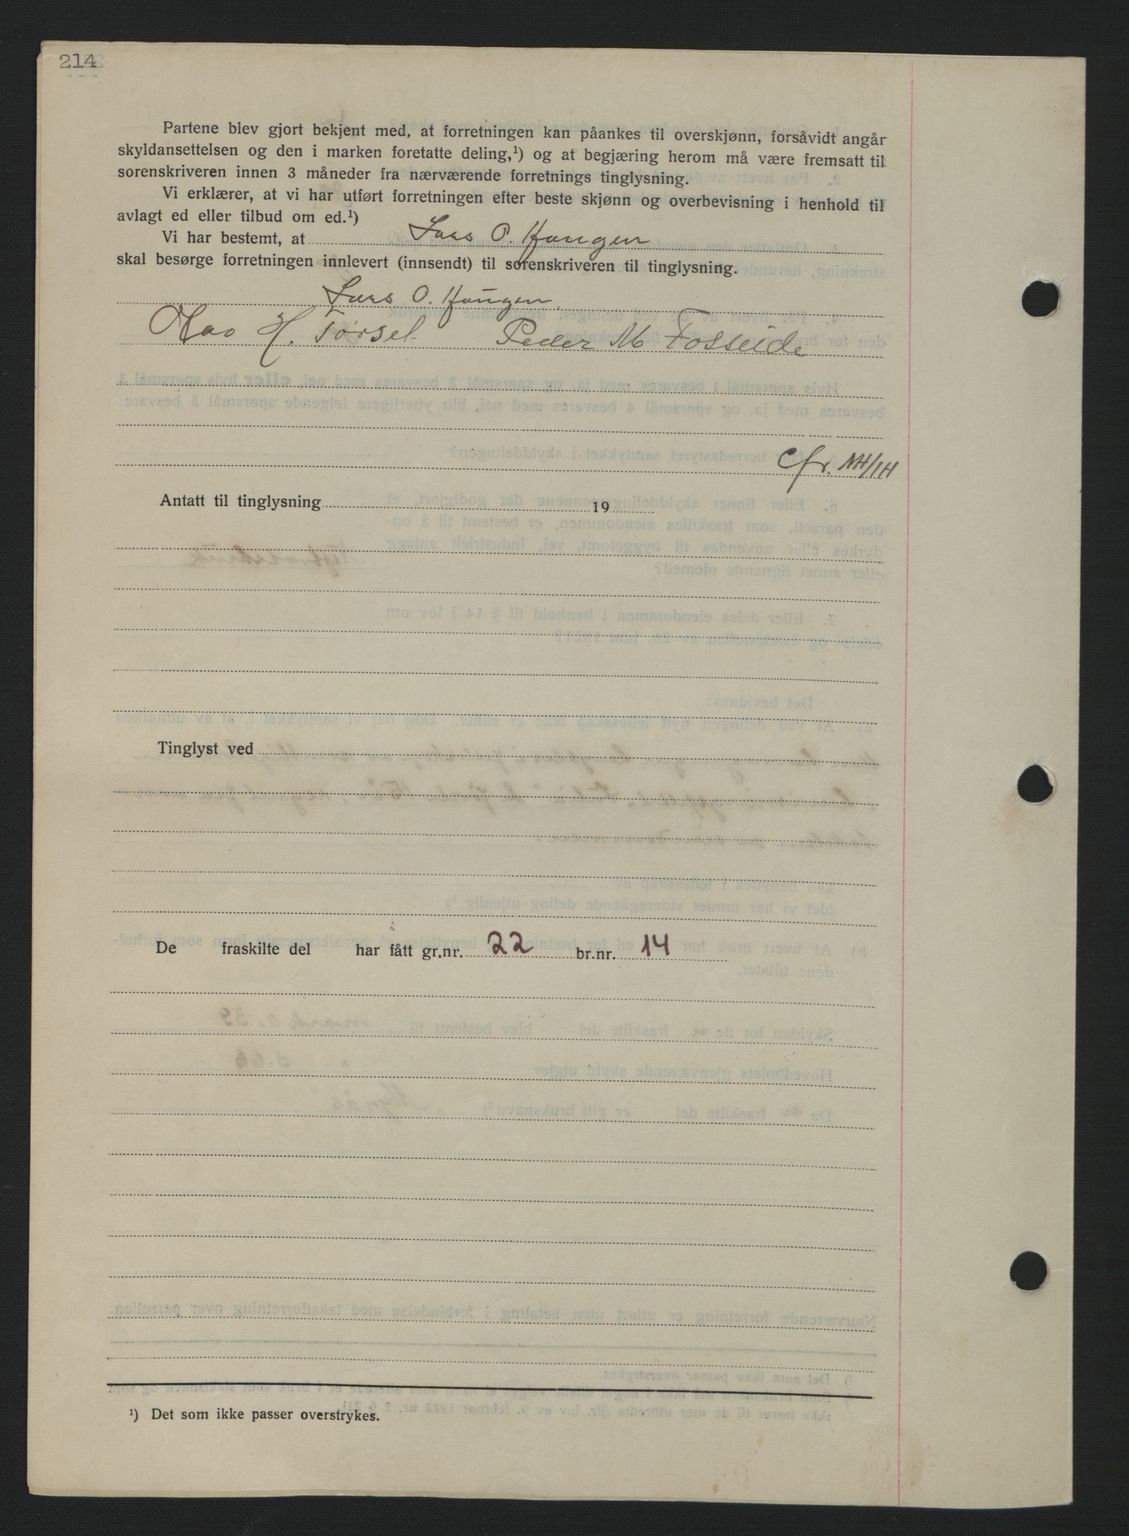 214
Partene blev gjort bekjent med, at forretningen kan påankes til overskjønn, forsåvidt angår
skyldansettelsen og den i marken foretatte deling,¹) og at begjæring herom må være fremsatt til
sorenskriveren innen 3 måneder fra nærværende forretnings tinglysning.
Vi erklærer, at vi har utført forretningen efter beste skjønn og overbevisning i henhold til
avlagt ed eller tilbud om ed.¹)
Vi har bestemt, at Lars O. Haugen
skal besørge forretningen innlevert (innsendt) til sorenskriveren til tinglysning.
Lars O. Haugen.
H. Torset Peder M Fosseide
Cfr. NH/IH
Antatt til tinglysning 19
Tinglyst ved
De fraskilte del har fått gr.nr. 22 br.nr. 14
¹) Det som ikke passer overstrykes.